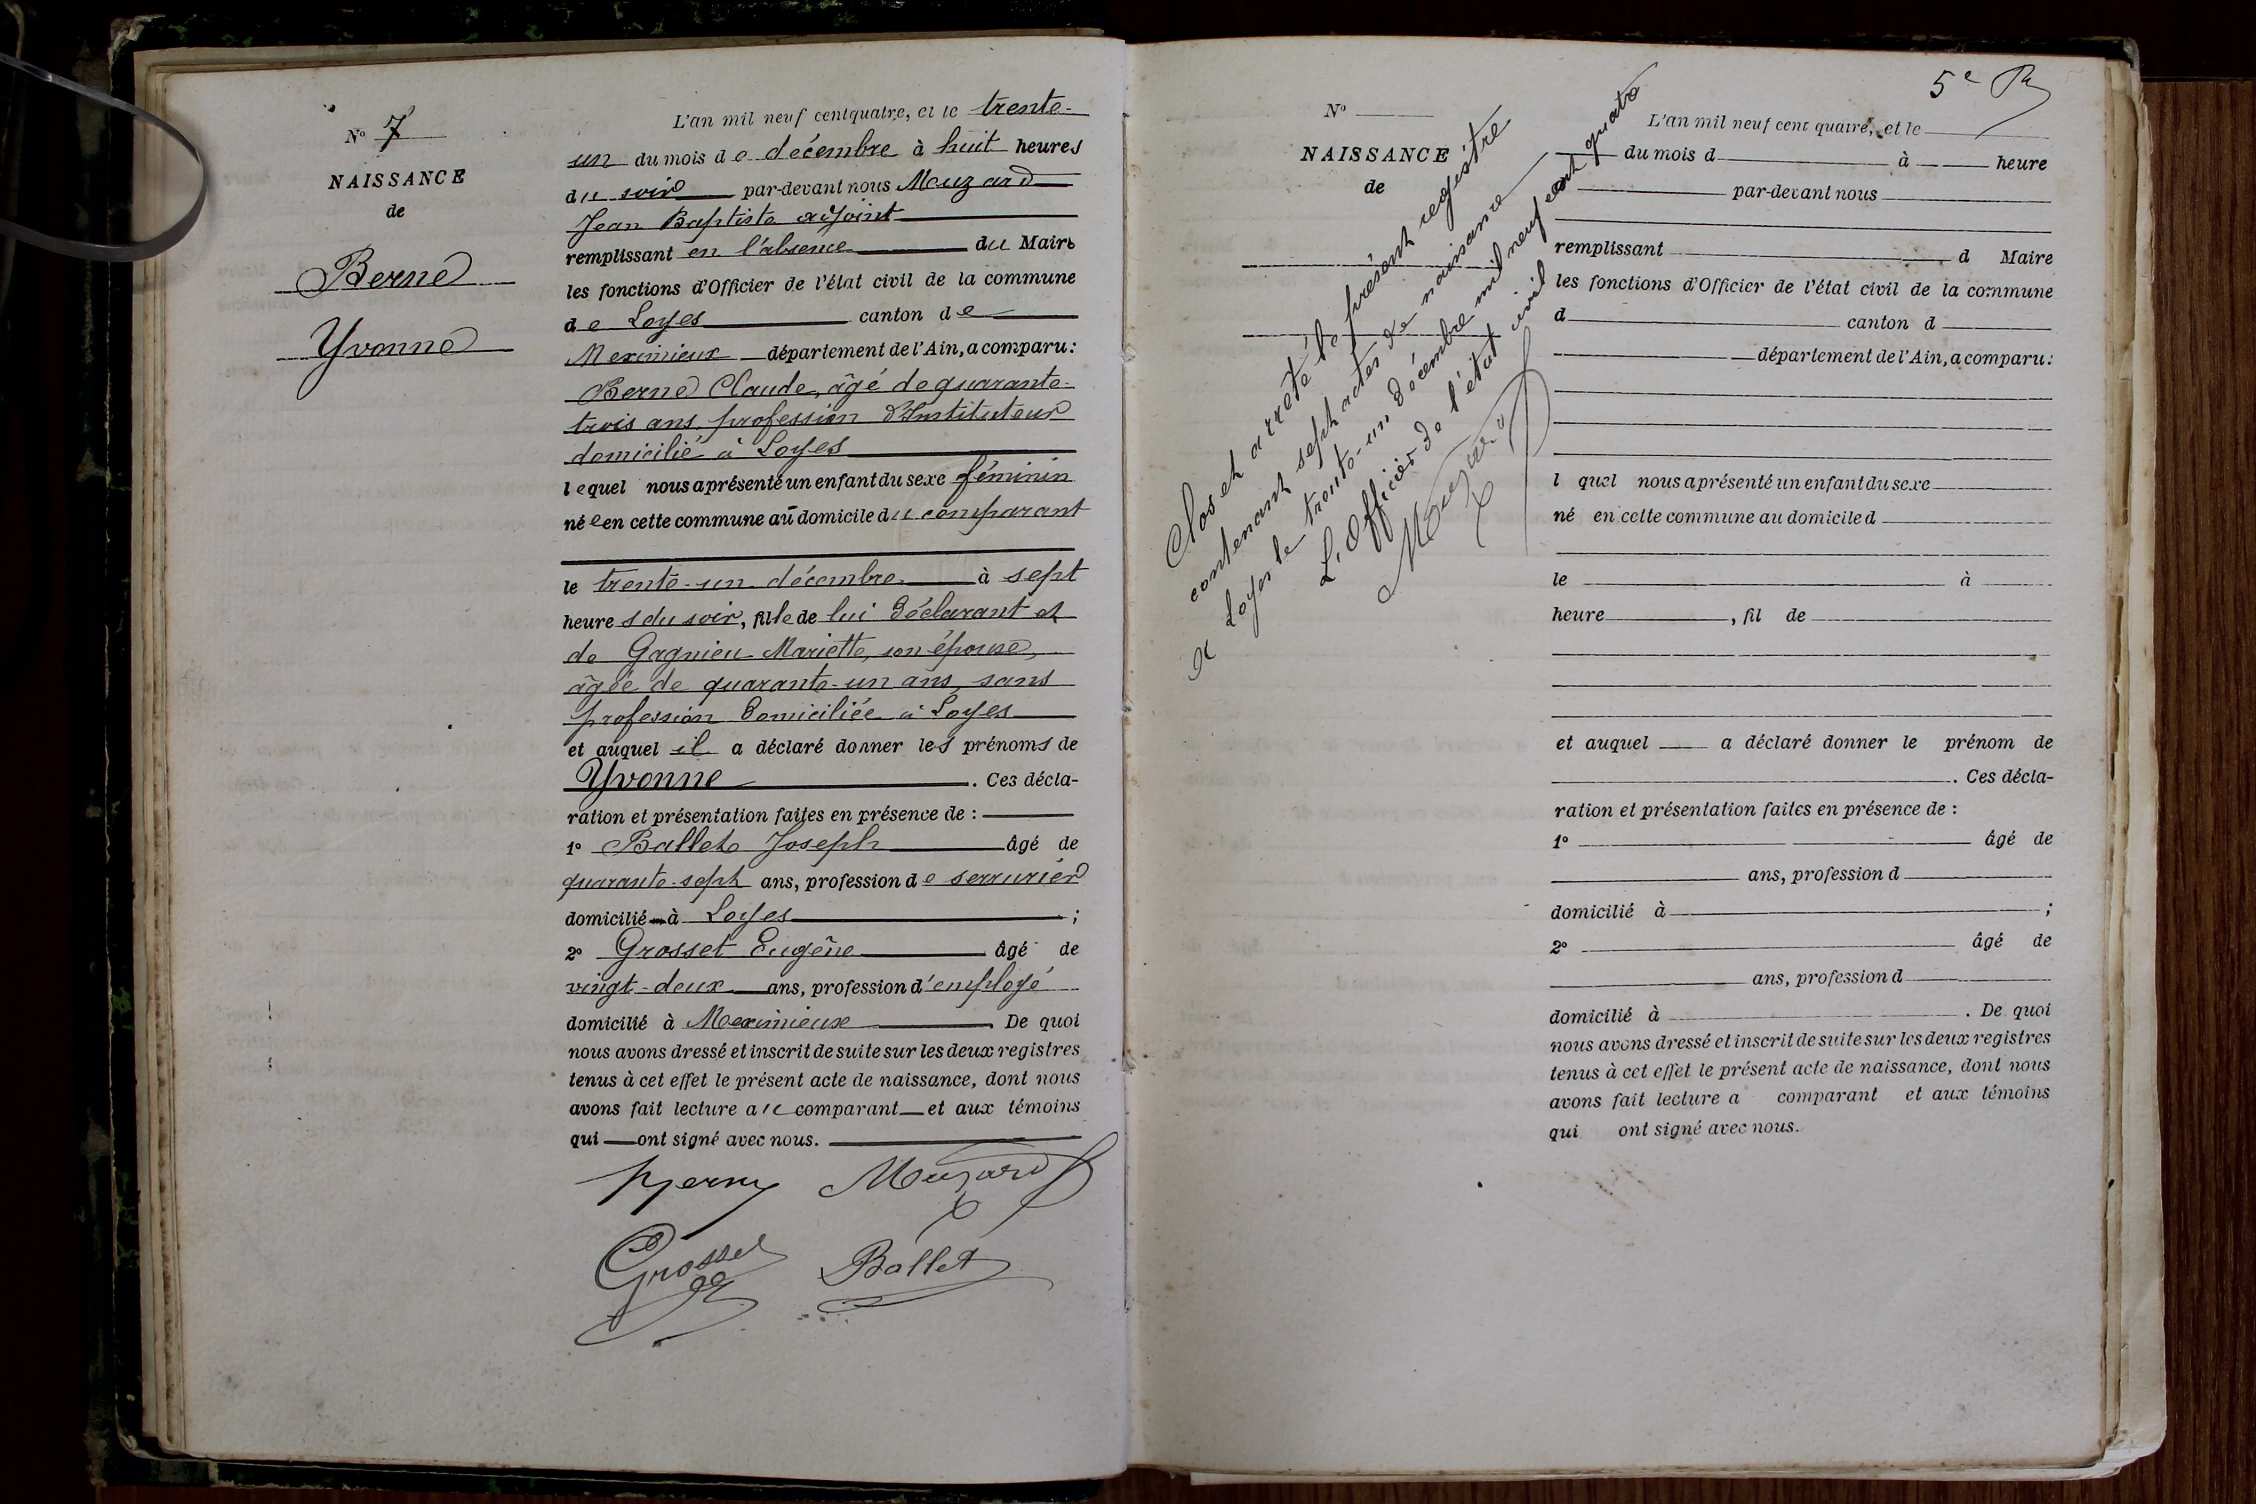 N° 7
NAISSANCE
de
Berne
Yvonne
L'an mil neuf cent quatre, et le trente-
un du mois de décembre à huit heures
du soir par-devant nous Mouzard
Jean Baptiste adjoint
remplissant en l'absence du Maire
les fonctions d'Officier de l'état civil de la commune
de Loyes canton de
Meximieux département de l'Ain, a comparu :
Berne Claude, âgé de quarante-
trois ans profession d'Instituteur
domicilié à Loyes
lequel nous a présenté un enfant du sexe féminin
née en cette commune au domicile du comparant
le trente-un décembre à sept
heures du soir, fille de lui déclarant et
de Gagnieu Mariette, son épouse,
âgée de quarante-un ans, sans
profession domiciliée à Loyes
et auquel il a déclaré donner les prénoms de
Yvonne. Ces décla-
ration et présentation faites en présence de :
1° Ballet Joseph âgé de
quarante-sept ans, profession de serrurier
domicilié à Loyes ;
2° Grosset Eugène âgé de
vingt-deux ans, profession d'employé
domicilié à Meximieux. De quoi
nous avons dressé et inscrit de suite sur les deux registres
tenus à cet effet le présent acte de naissance, dont nous
avons fait lecture au comparant et aux témoins
qui ont signé avec nous.
Mouzard
Grosset Ballet
5e
N°
NAISSANCE
de
Clos et arrêté le présent registre
contenant sept actes de naissance
à Loyes le trente-un décembre mil neuf cent quatre
L'Officier de l'état civil
Mouzard
L'an mil neuf cent quatre, et le
du mois d à heure
par-devant nous
remplissant d Maire
les fonctions d'Officier de l'état civil de la commune
d canton d
département de l'Ain, a comparu :
l quel nous a présenté un enfant du sexe
né en cette commune au domicile d
le à
heure , fil de
et auquel a déclaré donner le prénom de
. Ces décla-
ration et présentation faites en présence de :
1° âgé de
ans, profession d
domicilié à ;
2° âgé de
ans, profession d
domicilié à . De quoi
nous avons dressé et inscrit de suite sur les deux registres
tenus à cet effet le présent acte de naissance, dont nous
avons fait lecture a comparant et aux témoins
qui ont signé avec nous.